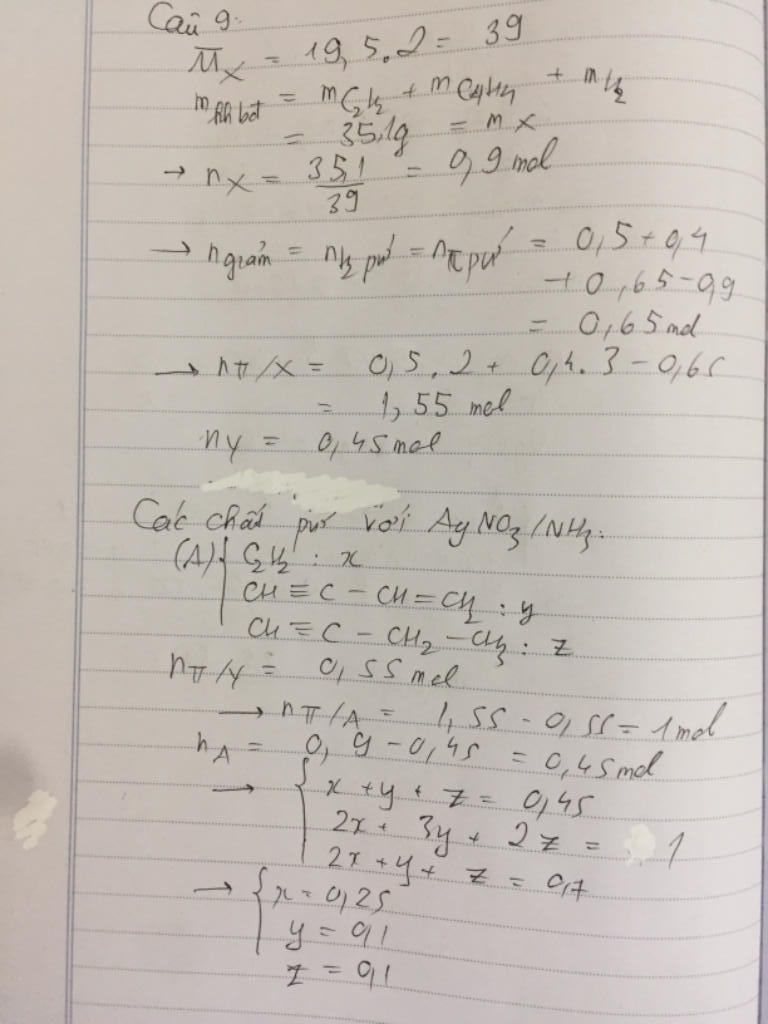 Câu 9:
M̅X = 19,5.2 = 39
mhh bđ = mC2H2 + mC4H4 + mH2
= 35,1g = mX
→ nX = 35,1/39 = 0,9 mol
→ ngiảm = nH2 pứ = nπ pứ = 0,5 + 0,4
+ 0,65 - 0,9
= 0,65 mol
→ nπ/X = 0,5.2 + 0,4.3 - 0,65
= 1,55 mol
nY = 0,45 mol
Các chất pứ với AgNO3/NH3:
(A) { C2H2 : x
CH ≡ C - CH = CH2 : y
CH ≡ C - CH2 - CH3 : z
nπ/Y = 0,55 mol
→ nπ/A = 1,55 - 0,55 = 1 mol
nA = 0,9 - 0,45 = 0,45 mol
→ { x + y + z = 0,45
2x + 3y + 2z = 1
2x + y + z = 0,7
→ { x = 0,25
y = 0,1
z = 0,1